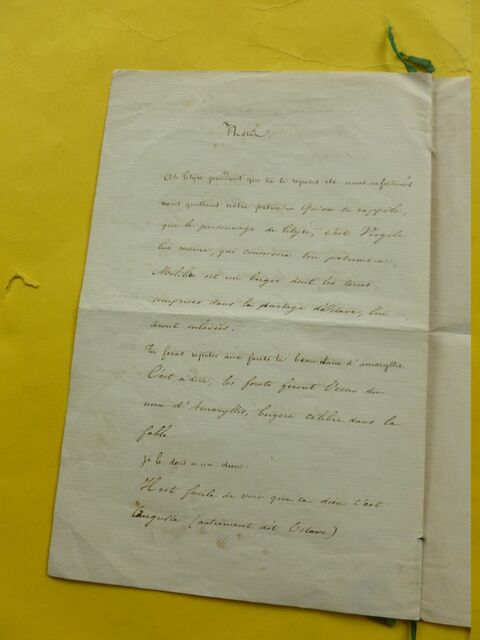 Ah tityre pendant que tu te reposes etc. nous infortunés
nous quittons notre patrie — Qu'on se rappèle,
que le personnage de tityre, c'est Virgile
lui même, qui conserve son patrimoine.
Mélibée est un berger dont les terres,
comprises dans le partage d'Octave, lui
seront enlevées.
Tu feras répéter aux forêts le beau nom d'amaryllis.
C'est, a dire, les forets feront l'echo du
nom d'Amaryllis, bergère célèbre dans la
fable.
je le dois a un dieu.
Il est facile de voir que ce dieu c'est
Auguste (autrement dit Octave)